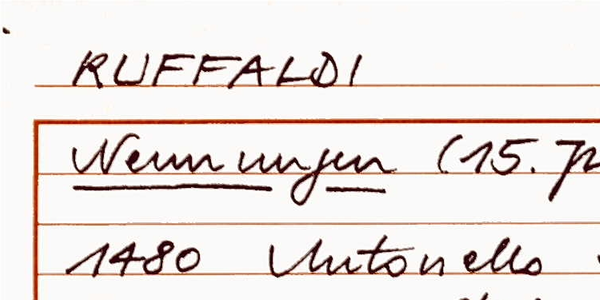 RUFFALDI
Nennungen (15. Jh
1480 Antonello